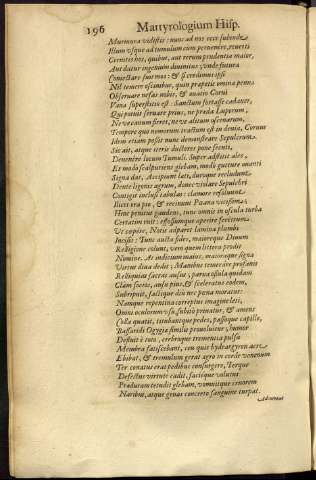 196 Martyrologium Hisp.
Murmura vidistis: nunc ad nos ecce
Illum vsque ad tumulum cùm peruenêre, reuerti
Cernitis hos, quibus, aut rerum prudentia maior,
Aut datur ingenium diuinius; vnde futura
Coniectare suum nos: & si credimus ipsi
Nil temerè oscinibus, quin præpetis omina pennæ
Obseruare nefas nobis, & auaria Corui
Vana superstitio est: Sanctum fortasse cadauer,
Qui potuit seruare prius, ne præda Luporum,
Neve canum foret, neve alitum obscœnarum,
Tempore quo nemorum tractum est in deuia, Coruus
Idem etiam possit nunc demonstrare Sepulcrum.
Sic ait, atque iteris ductores pone sequuti,
Deuenêre locum Tumuli. Super adstitit ales,
Et modò scalpturiens glebam, modò gutture
Signa dat, Accipiunt læti, durúque recludunt
Dente ligonis agrum, donec violare Sepulchri
Contigit inclusi tabulas: clamore resultant
Ilicet ter pio, & recinunt Pæana vicissim:
Hinc penitus gaudens, tunc omnis in oscula turba
Certatim ruit: effossumque aperire feretrum
Vt copere, Notis adparet lamina plumbi
Incisis: Tunc aucta fides, maiorque Diuum
Relligione colunt, vero quem littera prodit
Nomine. At indicium maius, maiorque signa
Virtus diua dedit: Manibus temerare profanis
Relliquias sacras ausus, parua ossula quidam
Clam sociis, ausu pius, & sceleratus eodem,
Subripuit, factíque diu nec pœna moratur:
Namque repentina correptus imagine leti,
Omni oculorum vsu subitò priuatur, & amens
Colla quatit, titubantque pedes, passíque capilli,
Bassaridi Ogygiæ similis prouoluitur, humor
Defuit è toto, cerebroque trementia pulsu
Membra fatiscebant, ceu quis hydrargyron acre
Ebibat, & tremulum gerat ægro in corde venenum
Ter conatus erat pedibus consurgere, Terque
Defectus virtute cadit, faciéque volutus
Præduram tetudit glebam, vomuitque cruorem
Naribus, atque genas concreto sanguine turpat.